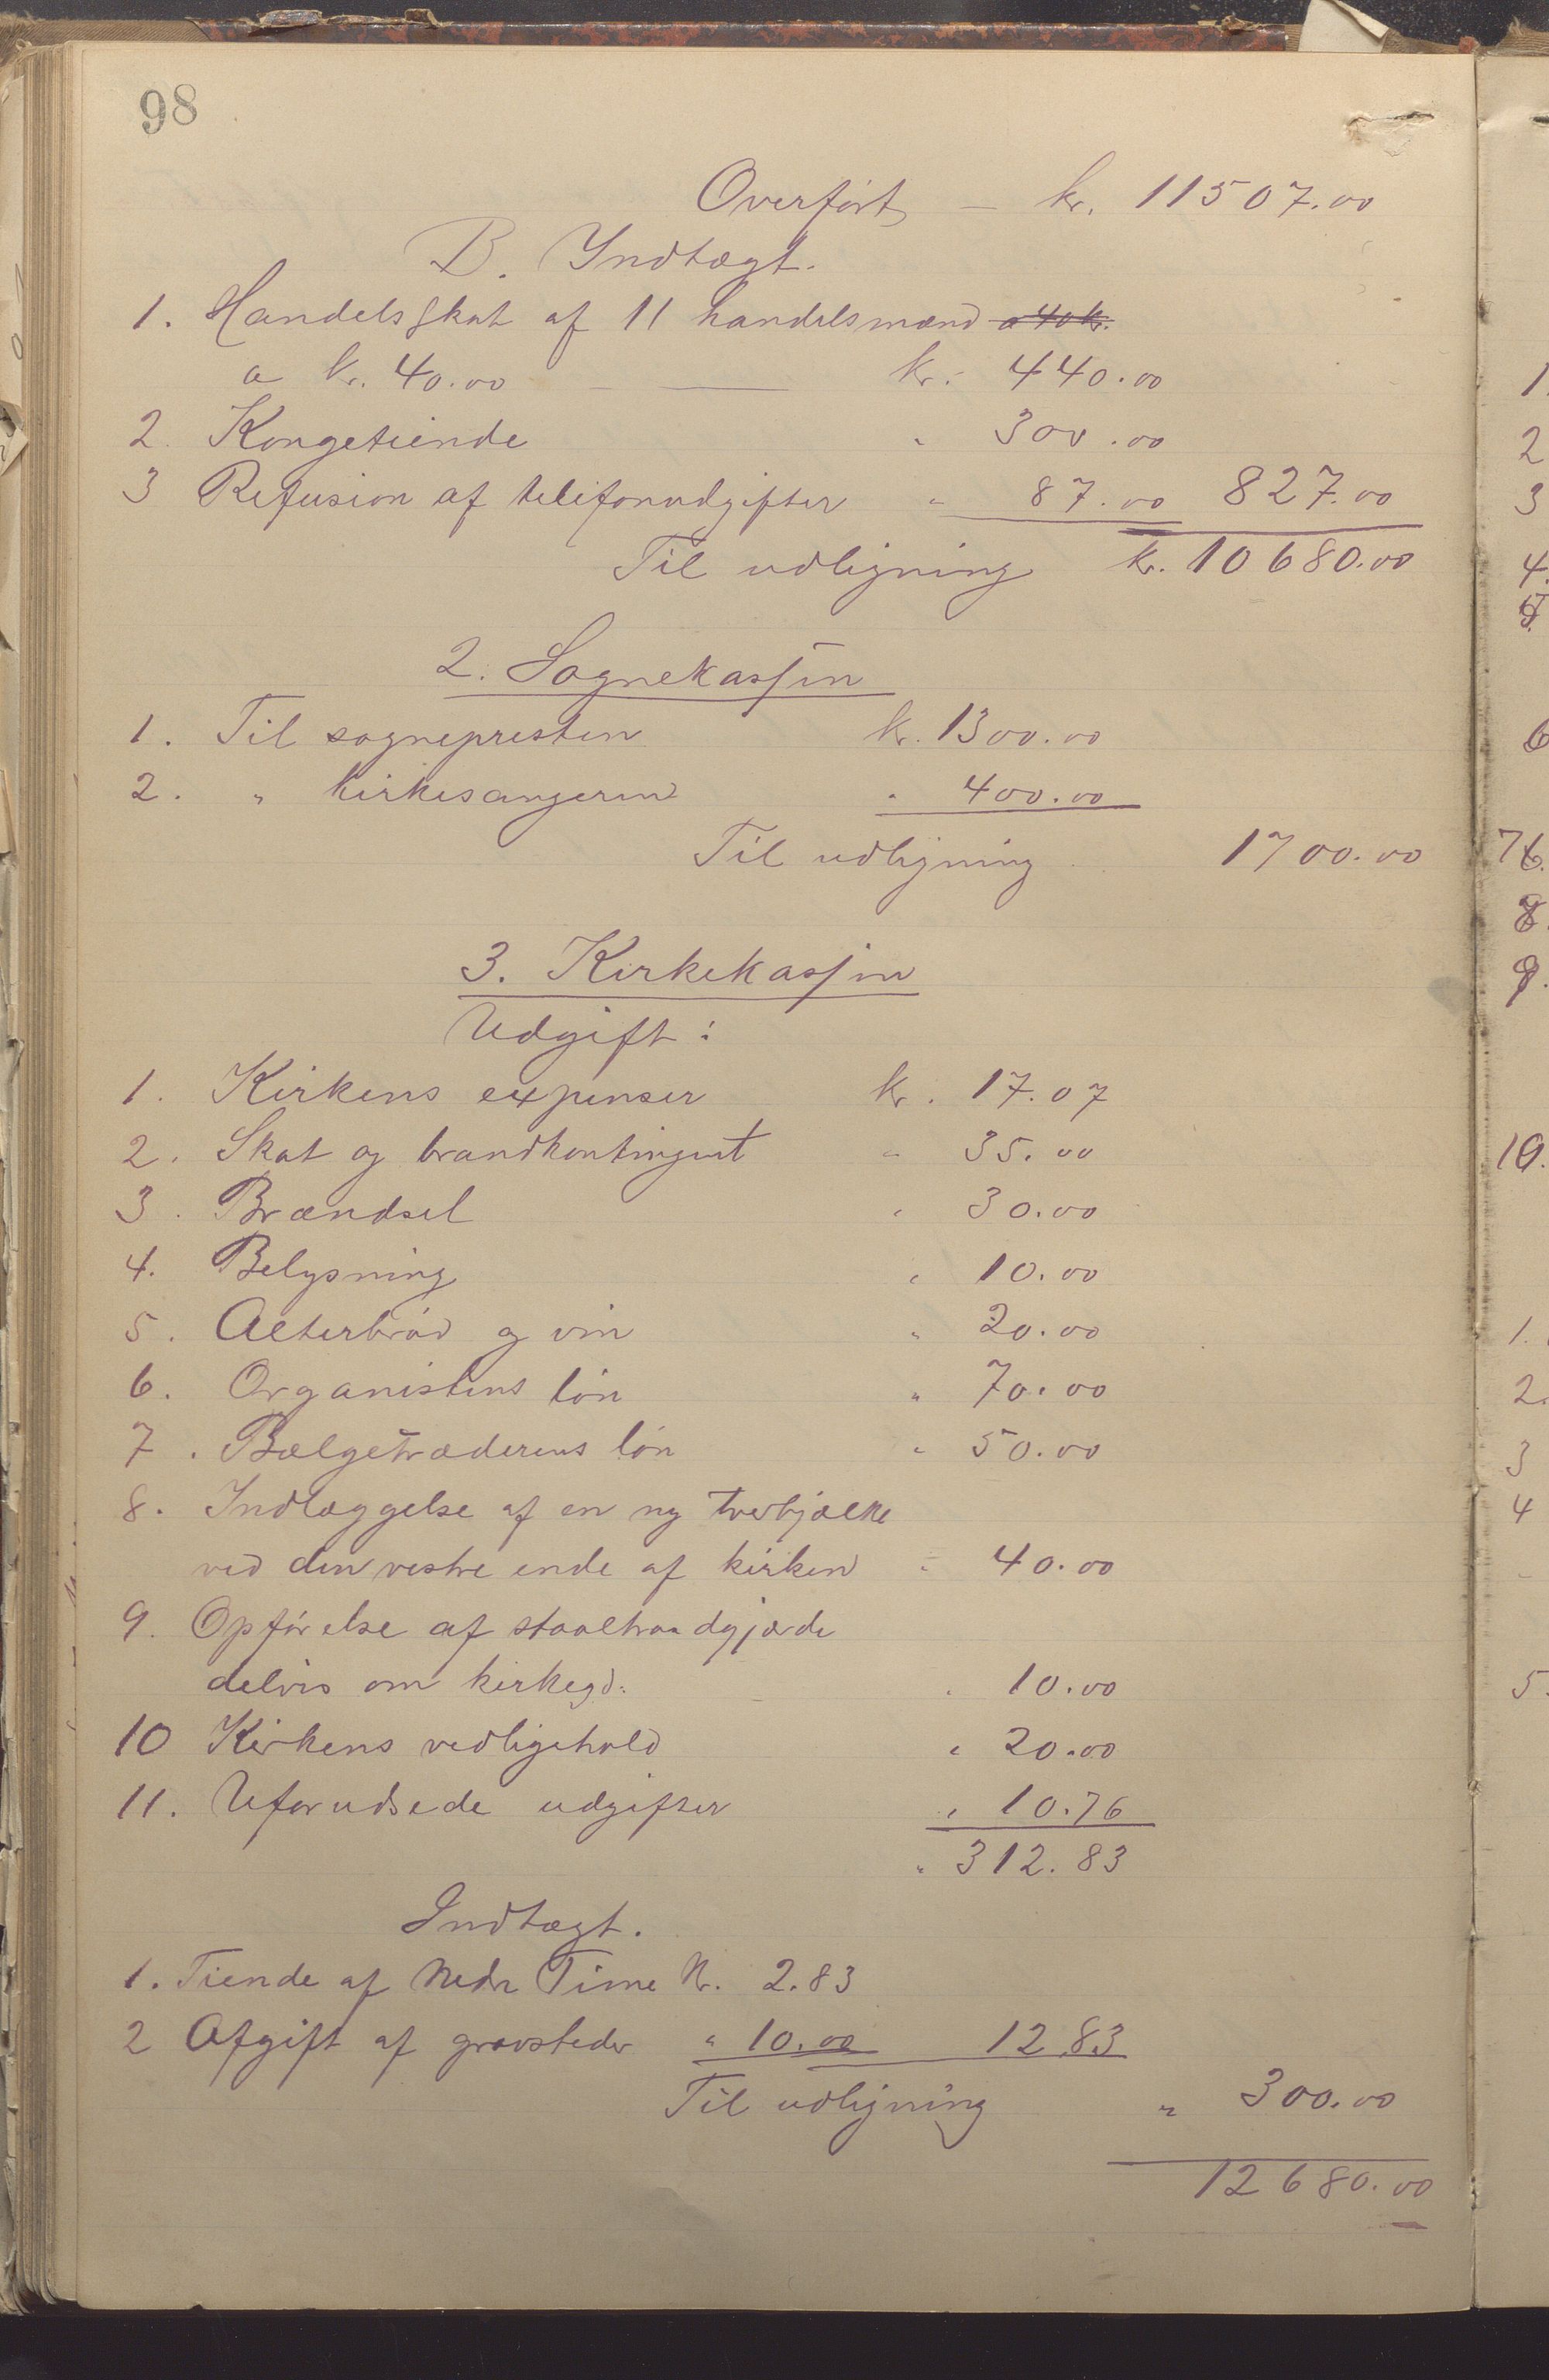 98
Overført — kr. 11507.00
B. Indtægt.
1. Handelsskat af 11 handelsmænd a 40 kr.
a kr. 40.00 — kr. 440.00
2. Kongetiende " 300.00
3 Refusion af telefonudgifter " 87.00 827.00
Til udligning kr. 10680.00
2. Sognekassen
1. Til sognepresten kr. 1300.00
2. " kirkesangeren " 400.00
Til udligning 1700.00
3. Kirkekassen
Udgift:
1. Kirkens expenser kr. 17.07
2. Skat og brandkontingent " 35.00
3. Brændsel " 30.00
4. Belysning " 10.00
5. Alterbrød og vin " 20.00
6. Organistens løn " 70.00
7. Bælgetræderens løn " 50.00
8. Indlæggelse af en ny tverbjælke
ved den vestre ende af kirken " 40.00
9. Opførelse af staaltraadgjærde
delvis om kirkegd: " 10.00
10 Kirkens vedligehold " 20.00
11. Uforudsede udgifter " 10.76
" 312.83
Indtægt.
1. Tiende af Nedre Time Kr. 2.83
2 Afgift af gravsteder " 10.00 12.83
Til udligning " 300.00
12680.00
1
2
3
4.
6
76.
8.
9.
10.
1.
2.
3
4
5.